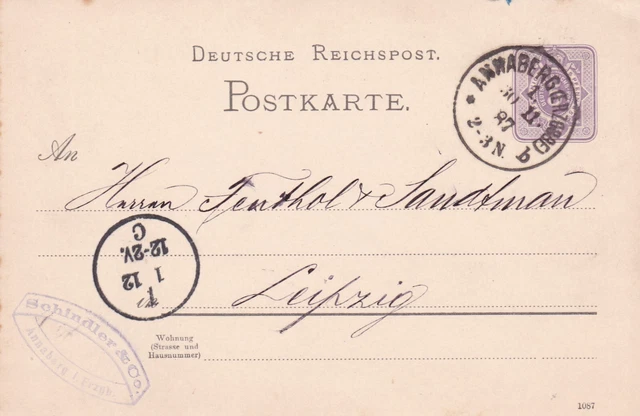 DEUTSCHE REICHSPOST.
POSTKARTE.
* ANNABERG (ERZGBGE) b
30 11.
87
2-3N.
An
Herren Tenthol & Sandtman
1
1 12
12-2V.
C
in Leipzig
Schindler & Co.
Annaberg i. Erzgb.
Wohnung
(Strasse und
Hausnummer)
1087